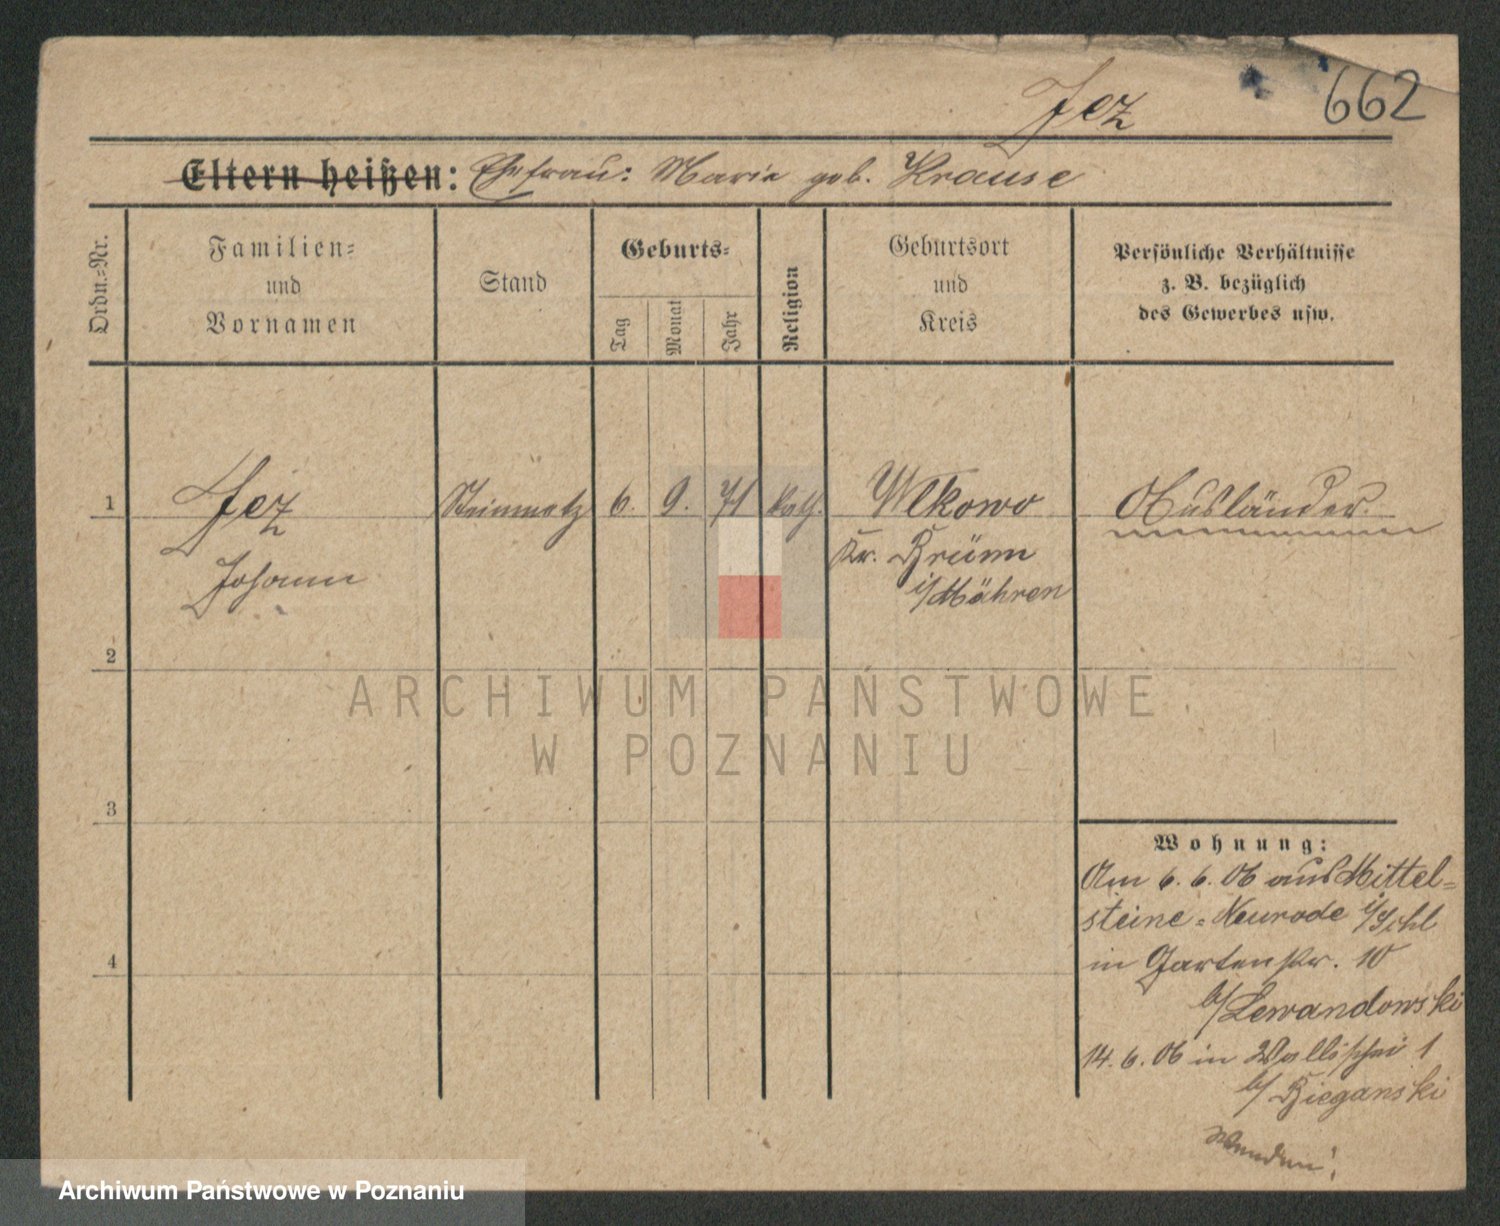 Jez
662
Eltern heißen: Ehefrau: Marie geb. Krause
Ordn.=Nr.
Familien=
und
Vornamen
Stand
Geburts=
Tag
Monat
Jahr
Religion
Geburtsort
und
Kreis
Persönliche Verhältnisse
z. B. bezüglich
des Gewerbes usw.
1
Jez
Johann
Steinmetz
6.
9.
71
kath.
Wlkowo
Kr. Brünn
i/Mähren
Ausländer.
2
3
4
Wohnung:
Am 6. 6. 06 aus Mittel=
steine=Neurode i/Schl
in Gartenstr. 10
b/Lewandowski
14. 6. 06 in Wallischei 1
b/ Bieganski
Wenden!
ARCHIWUM PAŃSTWOWE
W POZNANIU
Archiwum Państwowe w Poznaniu